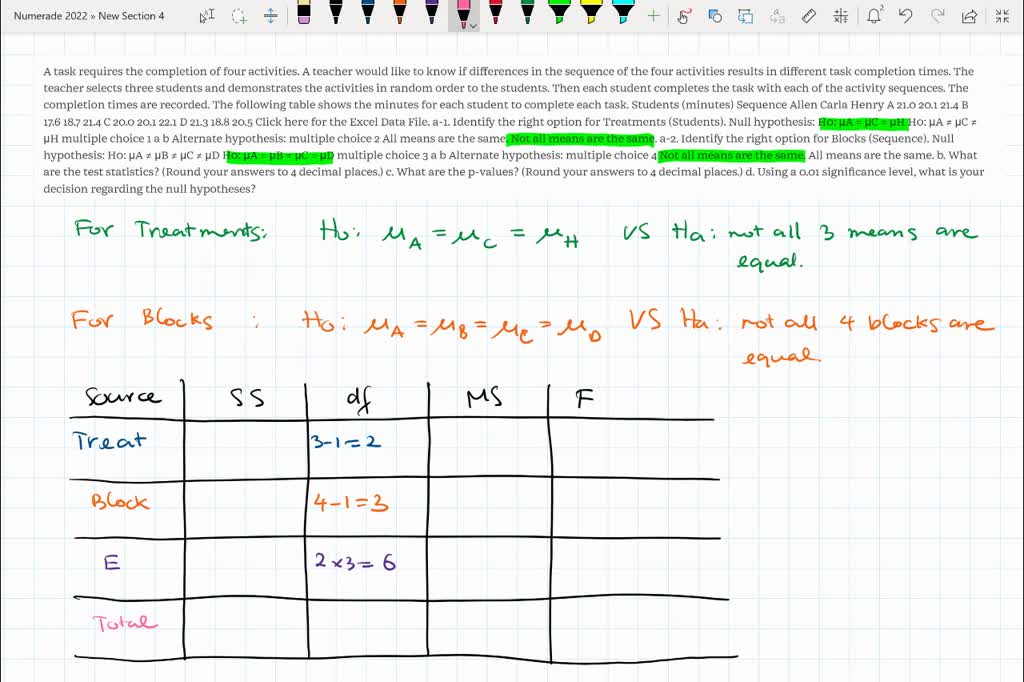 Numerade 2022 » New Section 4
A task requires the completion of four activities. A teacher would like to know if differences in the sequence of the four activities results in different task completion times. The
teacher selects three students and demonstrates the activities in random order to the students. Then each student completes the task with each of the activity sequences. The
completion times are recorded. The following table shows the minutes for each student to complete each task. Students (minutes) Sequence Allen Carla Henry A 21.0 20.1 21.4 B
17.6 18.7 21.4 C 20.0 20.1 22.1 D 21.3 18.8 20.5 Click here for the Excel Data File. a-1. Identify the right option for Treatments (Students). Null hypothesis: H0: μA = μC = μH H0: μA ≠ μC ≠
μH multiple choice 1 a b Alternate hypothesis: multiple choice 2 All means are the same. Not all means are the same. a-2. Identify the right option for Blocks (Sequence). Null
hypothesis: H0: μA ≠ μB ≠ μC ≠ μD H0: μA = μB = μC = μD multiple choice 3 a b Alternate hypothesis: multiple choice 4 Not all means are the same. All means are the same. b. What
are the test statistics? (Round your answers to 4 decimal places.) c. What are the p-values? (Round your answers to 4 decimal places.) d. Using a 0.01 significance level, what is your
decision regarding the null hypotheses?
For Treatments: Ho: μA = μC = μH VS Ha: not all 3 means are
equal.
For Blocks : Ho: μA = μB = μC = μD VS Ha: not all 4 blocks are
equal.
Source SS df MS F
Treat 3-1=2
Block 4-1=3
E 2×3=6
Total